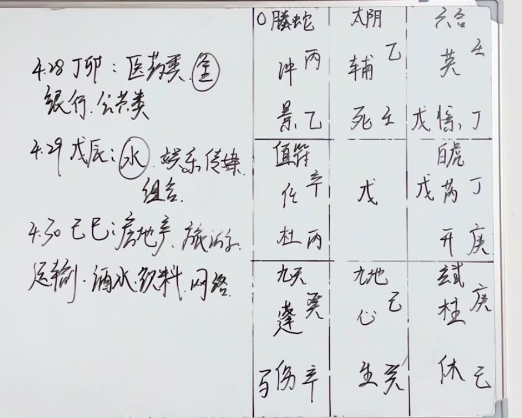 4.28 丁卯：医药类 金
银行.公共类
4.29 戊辰：水.娱乐传媒
组合.
4.30 己巳：房地产.旅游
运输.酒水.饮料.网络
O 螣蛇 太阴 六合
冲 丙 辅 乙 英 壬
景 乙 死 壬 戊 惊 丁
值符 白虎
任 辛 戊 戊 芮 丁
杜 丙 开 庚
九天 九地 玄武
蓬 癸 心 己 柱 庚
马 伤 辛 生 癸 休 己